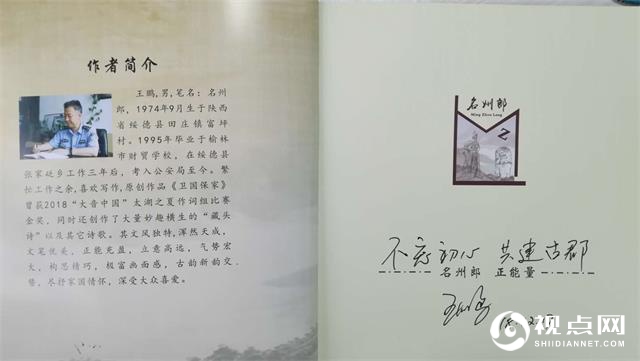 作者简介
王鹏,男,笔名：名州
郎，1974年9月生于陕西
省绥德县田庄镇富坪
村。1995年毕业于榆林
市财贸学校，在绥德县
张家砭乡工作三年后，考入公安局至今。繁
忙工作之余,喜欢写作,原创作品《卫国保家》
曾获2018“大音中国”太湖之夏作词组比赛
金奖，同时还创作了大量妙趣横生的“藏头
诗”以及其它诗歌。其文风独特,浑然天成，
文笔优美，正能充盈，立意高远，气势宏
大，构思精巧，极富画面感，古韵新韵交
替，尽抒家国情怀，深受大众喜爱。
名州郎
Ming Zhou Lang
不忘初心 共建古郡
名州郎 正能量
视点网
SHIDIANNET.COM